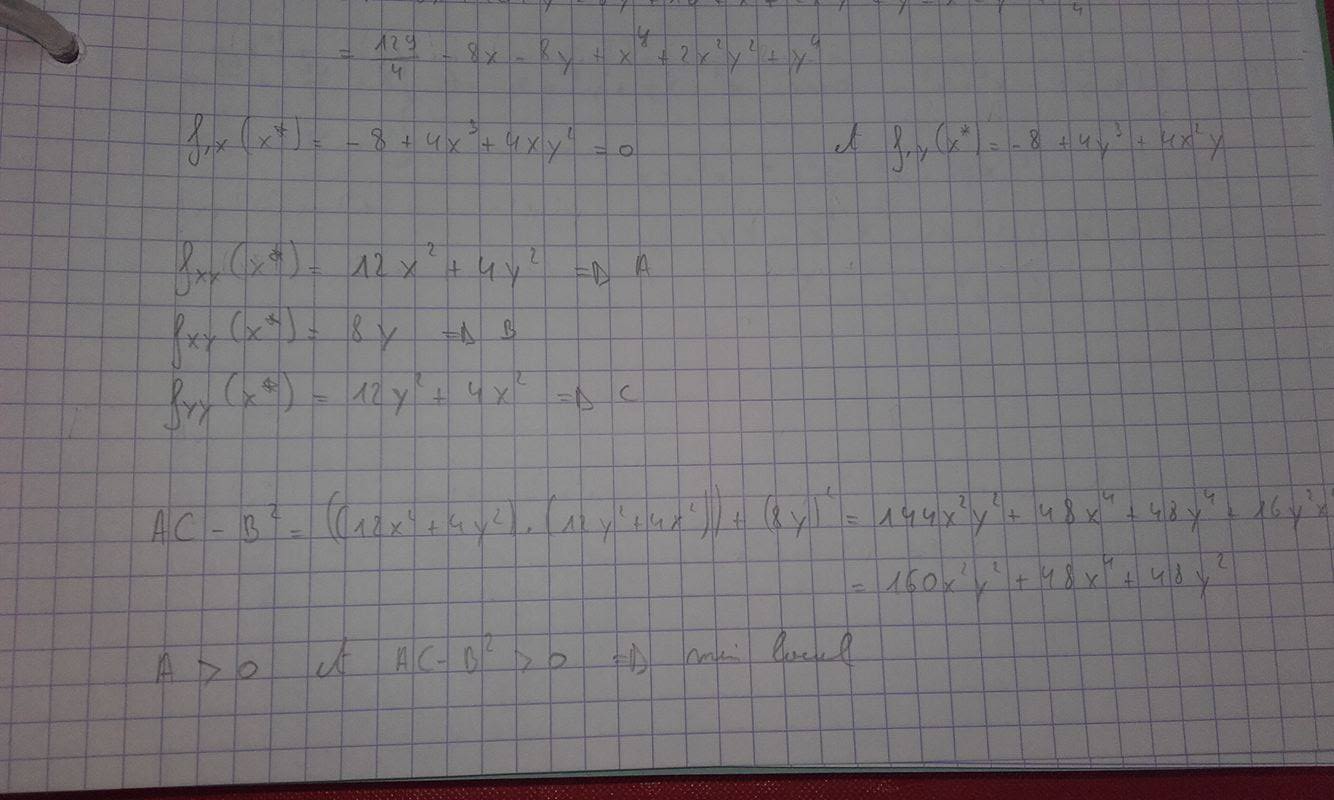 = 129/4 - 8x - 8y + x⁴ + 2x²y² + y⁴
f,x (x*) = -8 + 4x³ + 4xy² = 0 et f,y (x*) = -8 + 4y³ + 4x²y
fxx (x*) = 12x² + 4y² => A
fxy (x*) = 8y => B
fyy (x*) = 12y² + 4x² => C
AC - B² = ((12x² + 4y²) · (12y² + 4x²)) + (8y)² = 144x²y² + 48x⁴ + 48y⁴ + 16y²x²
= 160x²y² + 48x⁴ + 48y²
A > 0 et AC - B² > 0 => min local